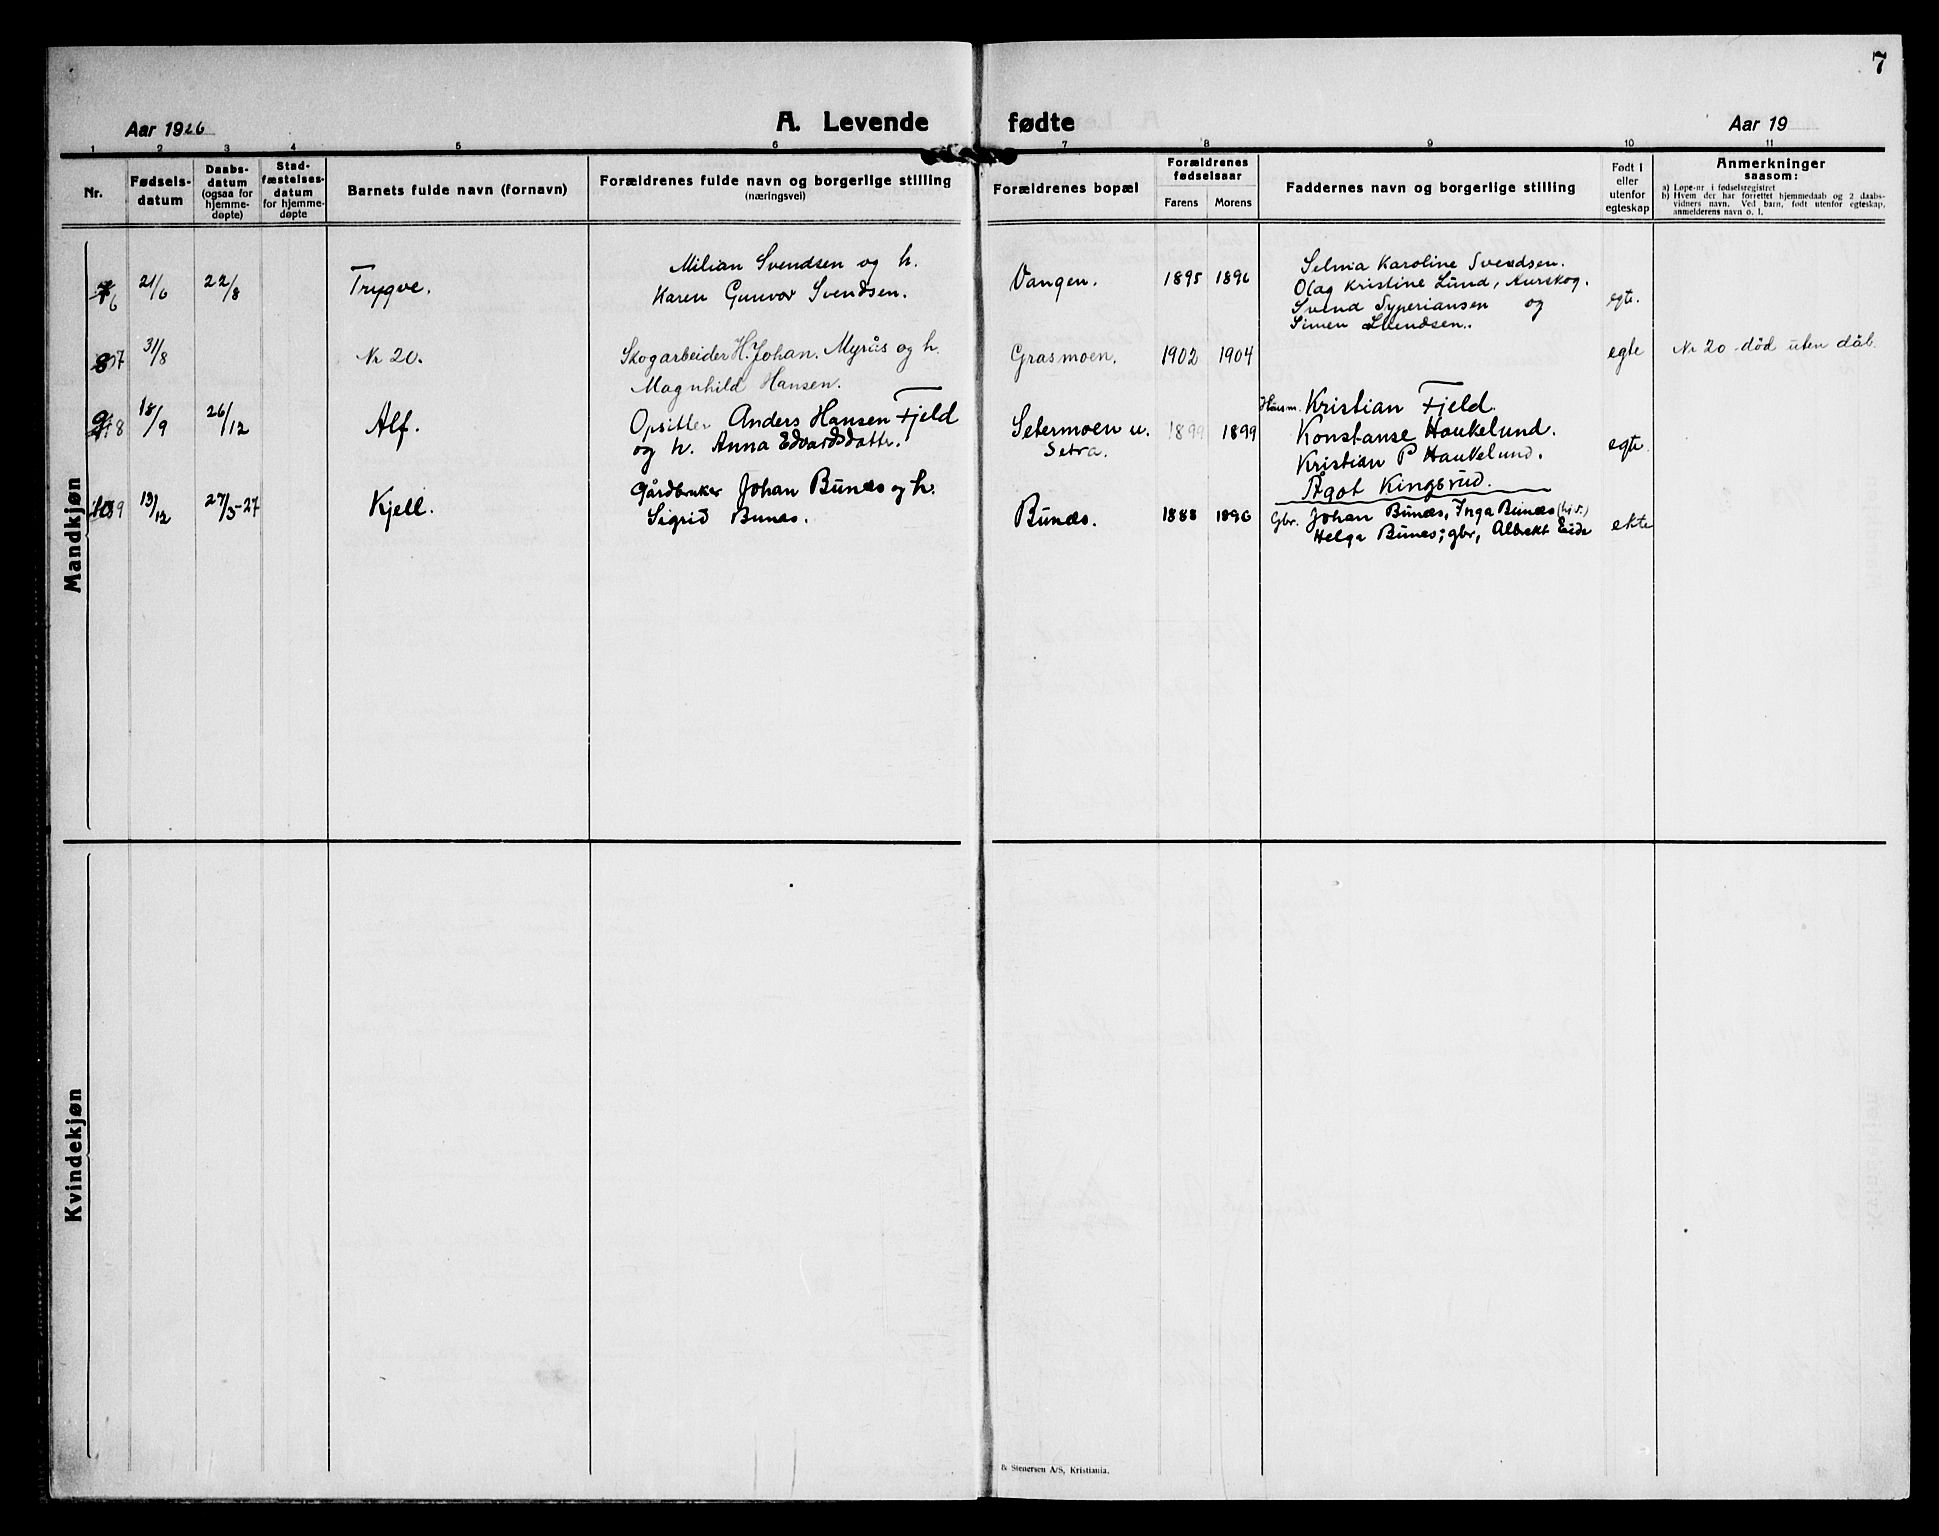 7
Aar 1926
A. Levende fødte
Aar 19
1 2 3 4 5 6 7 8 9 10 11
Nr.
Fødsels-
datum
Daabs-
datum
(ogsaa for
hjemme-
døpte)
Stad-
fæstelses-
datum
for hjemme-
døpte
Barnets fulde navn (fornavn)
Forældrenes fulde navn og borgerlige stilling
(næringsvei)
Forældrenes bopæl
Forældrenes
fødselsaar
Farens Morens
Faddernes navn og borgerlige stilling
Født i
eller
utenfor
egteskap
Anmerkninger
saasom:
a) Løpe-nr i fødselsregistret
b) Hvem der har forrettet hjemmedaab og 2 daabs-
vidners navn. Ved barn, født utenfor egteskap,
anmelderens navn o. l.
Mandkjøn
6 21/6 22/8 Trygve.
Milian Svendsen og h.
Karen Gunvor Svendsen.
Vangen. 1895 1896
Selma Karoline Svendsen.
Olag Kristine Lund, Aurskog.
Svend Syperiansen og
Simen Svendsen.
egte.
7 31/8 Nr 20.
Skogarbeider H. Johan. Myrås og h.
Magnhild Hansen.
Grasmoen. 1902 1904 egte Nr 20 død uten dåb.
8 18/9 26/12 Alf.
Opsitter Anders Hansen Fjeld
og h. Anna Edvardsdatter.
Setermoen u.
Setra.
1899 1899
Kristian Fjeld.
Konstanse Haukelund.
Kristian P Haukelund.
Ågot Kingsrud.
egte
9 13/12 27/3-27 Kjell.
Gårdbruker Johan Bunæs og h.
Sigrid Bunæs.
Bunæs. 1888 1896
Gbr. Johan Bunæs, Inga Bunæs
Helga Bunæs; gbr, Albrekt Eide
ekte
Kvindekjøn
& Stenersen A/S, Kristiania.